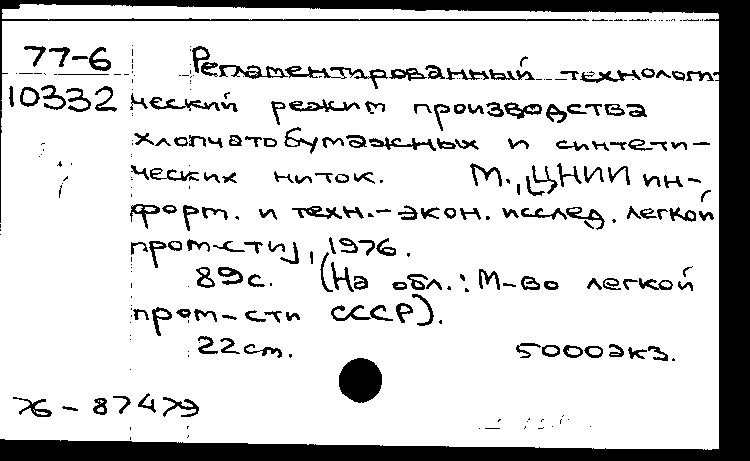 77-6 Регламентированный технологи-
10332 ческий режим производства
хлопчатобумажных и синтети-
ческих ниток. М., [ЦНИИ ин-
форм. и техн.-экон. исслед. легкой
пром-сти], 1976.
89с. (На обл.: М-во легкой
пром-сти СССР).
22см. 5000экз.
76-87479